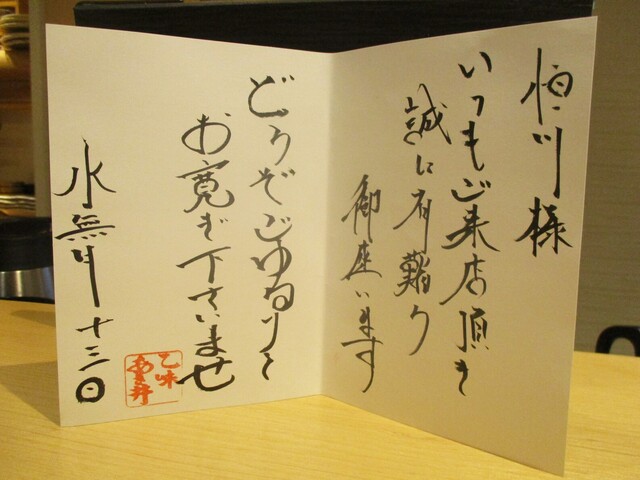 恒川様
いつもご来店頂き
誠に有難く
御座います
どうぞごゆるりと
お寛ぎ下さいませ
水無月十三日
乙味
あさ井